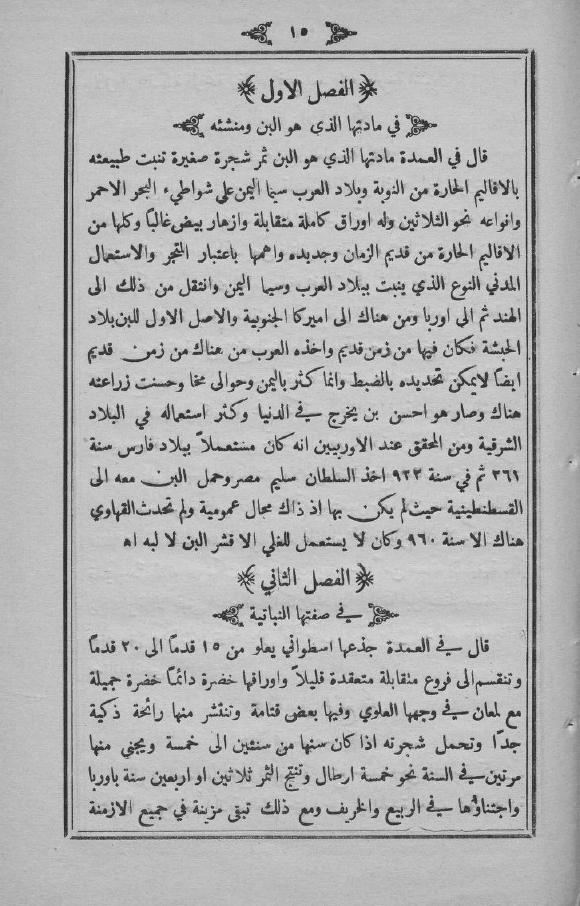 ١٥
الفصل الاول
في مادتها الذي هو البن ومنشئه
قال في العمدة مادتها الذي هو البن ثمر شجرة صغيرة تنبت طبيعته
بالاقاليم الحارة من النوبة وبلاد العرب سيما اليمن على شواطيء البحر الاحمر
وانواعه نحو الثلاثين وله اوراق كاملة متقابلة وازهار بيض غالبًا وكلها من
الاقاليم الحارة من قديم الزمان وجديده واهمها باعتبار التجر والاستعمال
المدني النوع الذي ينبت ببلاد العرب وسيما اليمن وانتقل من ذلك الى
الهند ثم الى اوربا ومن هناك الى اميركا الجنوبية والاصل الاول للبن بلاد
الحبشة فكان فيها من زمن قديم واخذه العرب من هناك من زمن قديم
ايضًا لايمكن تحديده بالضبط وانما كثر باليمن وحوالى مخا وحسنت زراعته
هناك وصار هو احسن بن يخرج في الدنيا وكثر استعماله في البلاد
الشرقية ومن المحقق عند الاوربيين انه كان مستعملاً ببلاد فارس سنة
٣٦١ ثم في سنة ٩٢٣ اخذ السلطان سليم مصر وحمل البن معه الى
القسطنطينية حيث لم يكن بها اذ ذاك محال عمومية ولم تحدث القهاوي
هناك الا سنة ٩٦٠ وكان لا يستعمل للغلي الا قشر البن لا لبه اه
الفصل الثاني
في صفتها النباتية
قال في العمدة جذعها اسطواني يعلو من ١٥ قدمًا الى ٢٠ قدمًا
وتنقسم الى فروع متقابلة متعقدة قليلاً واوراقها خضرة دائمًا خضرة جميلة
مع لمعان في وجهها العلوي وفيها بعض قتامة وتنتشر منها رائحة ذكية
جدًا وتحمل شجرته اذا كان سنها من سنتين الى خمسة ويجني منها
مرتين في السنة نحو خمسة ارطال وتنتج الثمر ثلاثين او اربعين سنة باوربا
واجتناؤها في الربيع والخريف ومع ذلك تبقى مزينة في جميع الازمنة